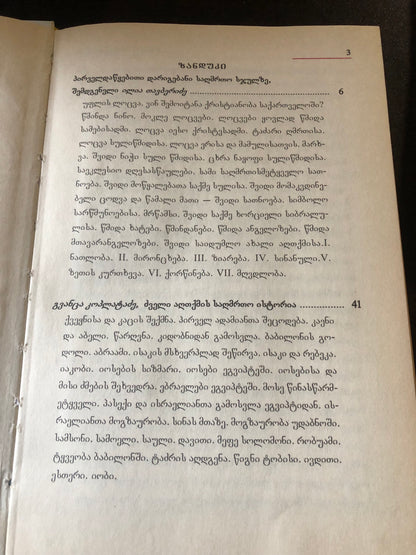 3
ზანდუკი
პირველდაწყებითი დარიგებანი საღმრთო სჯულზე,
შემდგენელი ილია თავბერიძე 6
უფლის ლოცვა. ვინ შემოიტანა ქრისტიანობა საქართველოში?
წმინდა ნინო. მოკლე ლოცვები. ლოცვები ყოვლად წმიდა
სამებისადმი. ლოცვა იესო ქრისტესადმი. ტაძარი ღმრთისა.
ლოცვა სულიწმიდისა. ლოცვა ერისა და მამულისათვის. მარხ-
ვა. შვიდი ნიჭი სული წმიდისა. ცხრა ნაყოფი სულიწმიდისა.
საეკლესიო დღესასწაულები. სამი საღმრთისმეტყველო სათ-
ნოება. შვიდი მოწყალებათა საქმე სულისა. შვიდი მომაკვდინე-
ბელი ცოდვა და წამალი მათი — შვიდი სათნოება. სიმბოლო
სარწმუნოებისა. მრწამსი. შვიდი საქმე ხორციელი სიბრალუ-
ლისა. წმიდა ხატები. წმინდანები. წმიდა ანგელოზები. წმიდა
მთავარანგელოზები. შვიდი საიდუმლო ახალი აღთქმისა.I.
ნათლობა. II. მირონცხება. III. ზიარება. IV. სინანული.V.
ზეთის კურთხევა. VI. ქორწინება. VII. მღვდლობა.
გვანცა კოპლატაძე, ძველი აღთქმის საღმრთო ისტორია ............... 41
ქვეყნისა და კაცის შექმნა. პირველ ადამიანთა შეცოდება. კაენი
და აბელი. წარღვნა. კიდობნიდან გამოსელა. ბაბილონის გო-
დოლი. აბრაამი. ისაკის მსხვერპლად შეწირვა. ისაკი და რებეკა.
იაკობი. იოსების სიზმარი. იოსები ეგვიპტეში. იოსებისა და
მისი ძმების შეხვედრა. ებრაელები ეგვიპტეში. მოსე წინასწარმ-
ეტყველი. პასექი და ისრაელიანთა გამოსელა ეგვიპტიდან. ის-
რაელიანთა მოგზაურობა. სინას მთაზე. მოგზაურობა უდაბნოში.
სამსონი. სამოელი. საული. დავითი. მეფე სოლომონი. რობუამი.
ტყვეობა ბაბილონში. ტაძრის აღდგენა. წიგნი ტობისი. ივდითი.
ესთერი. იობი.